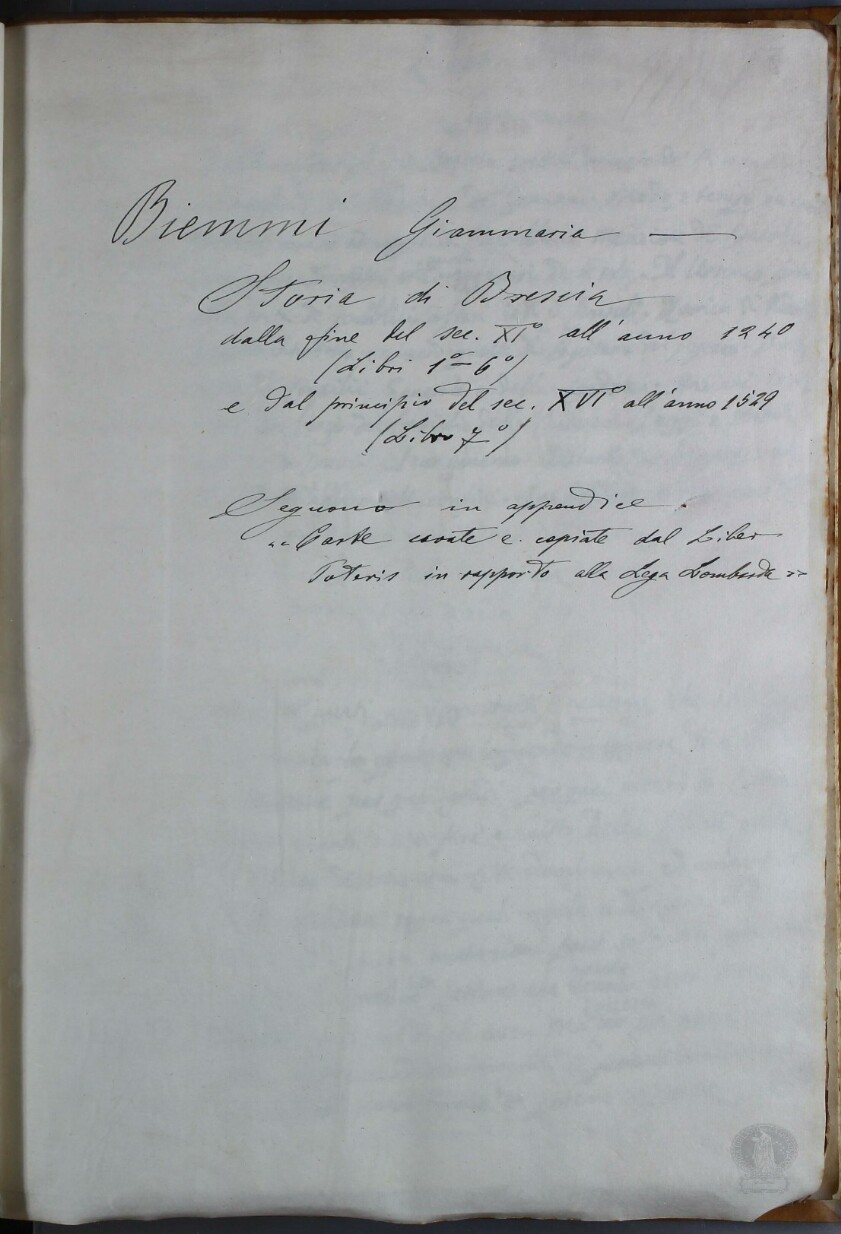 Biemmi Giammaria —
Storia di Brescia
dalla fine del sec. XI° all'anno 1240
(Libri 1°-6°)
e dal principio del sec. XVI° all'anno 1529
(Libro 7°)
Seguono in appendice.
"Carte cavate e copiate dal Liber
Poteris in rapporto alla Lega Lombarda"